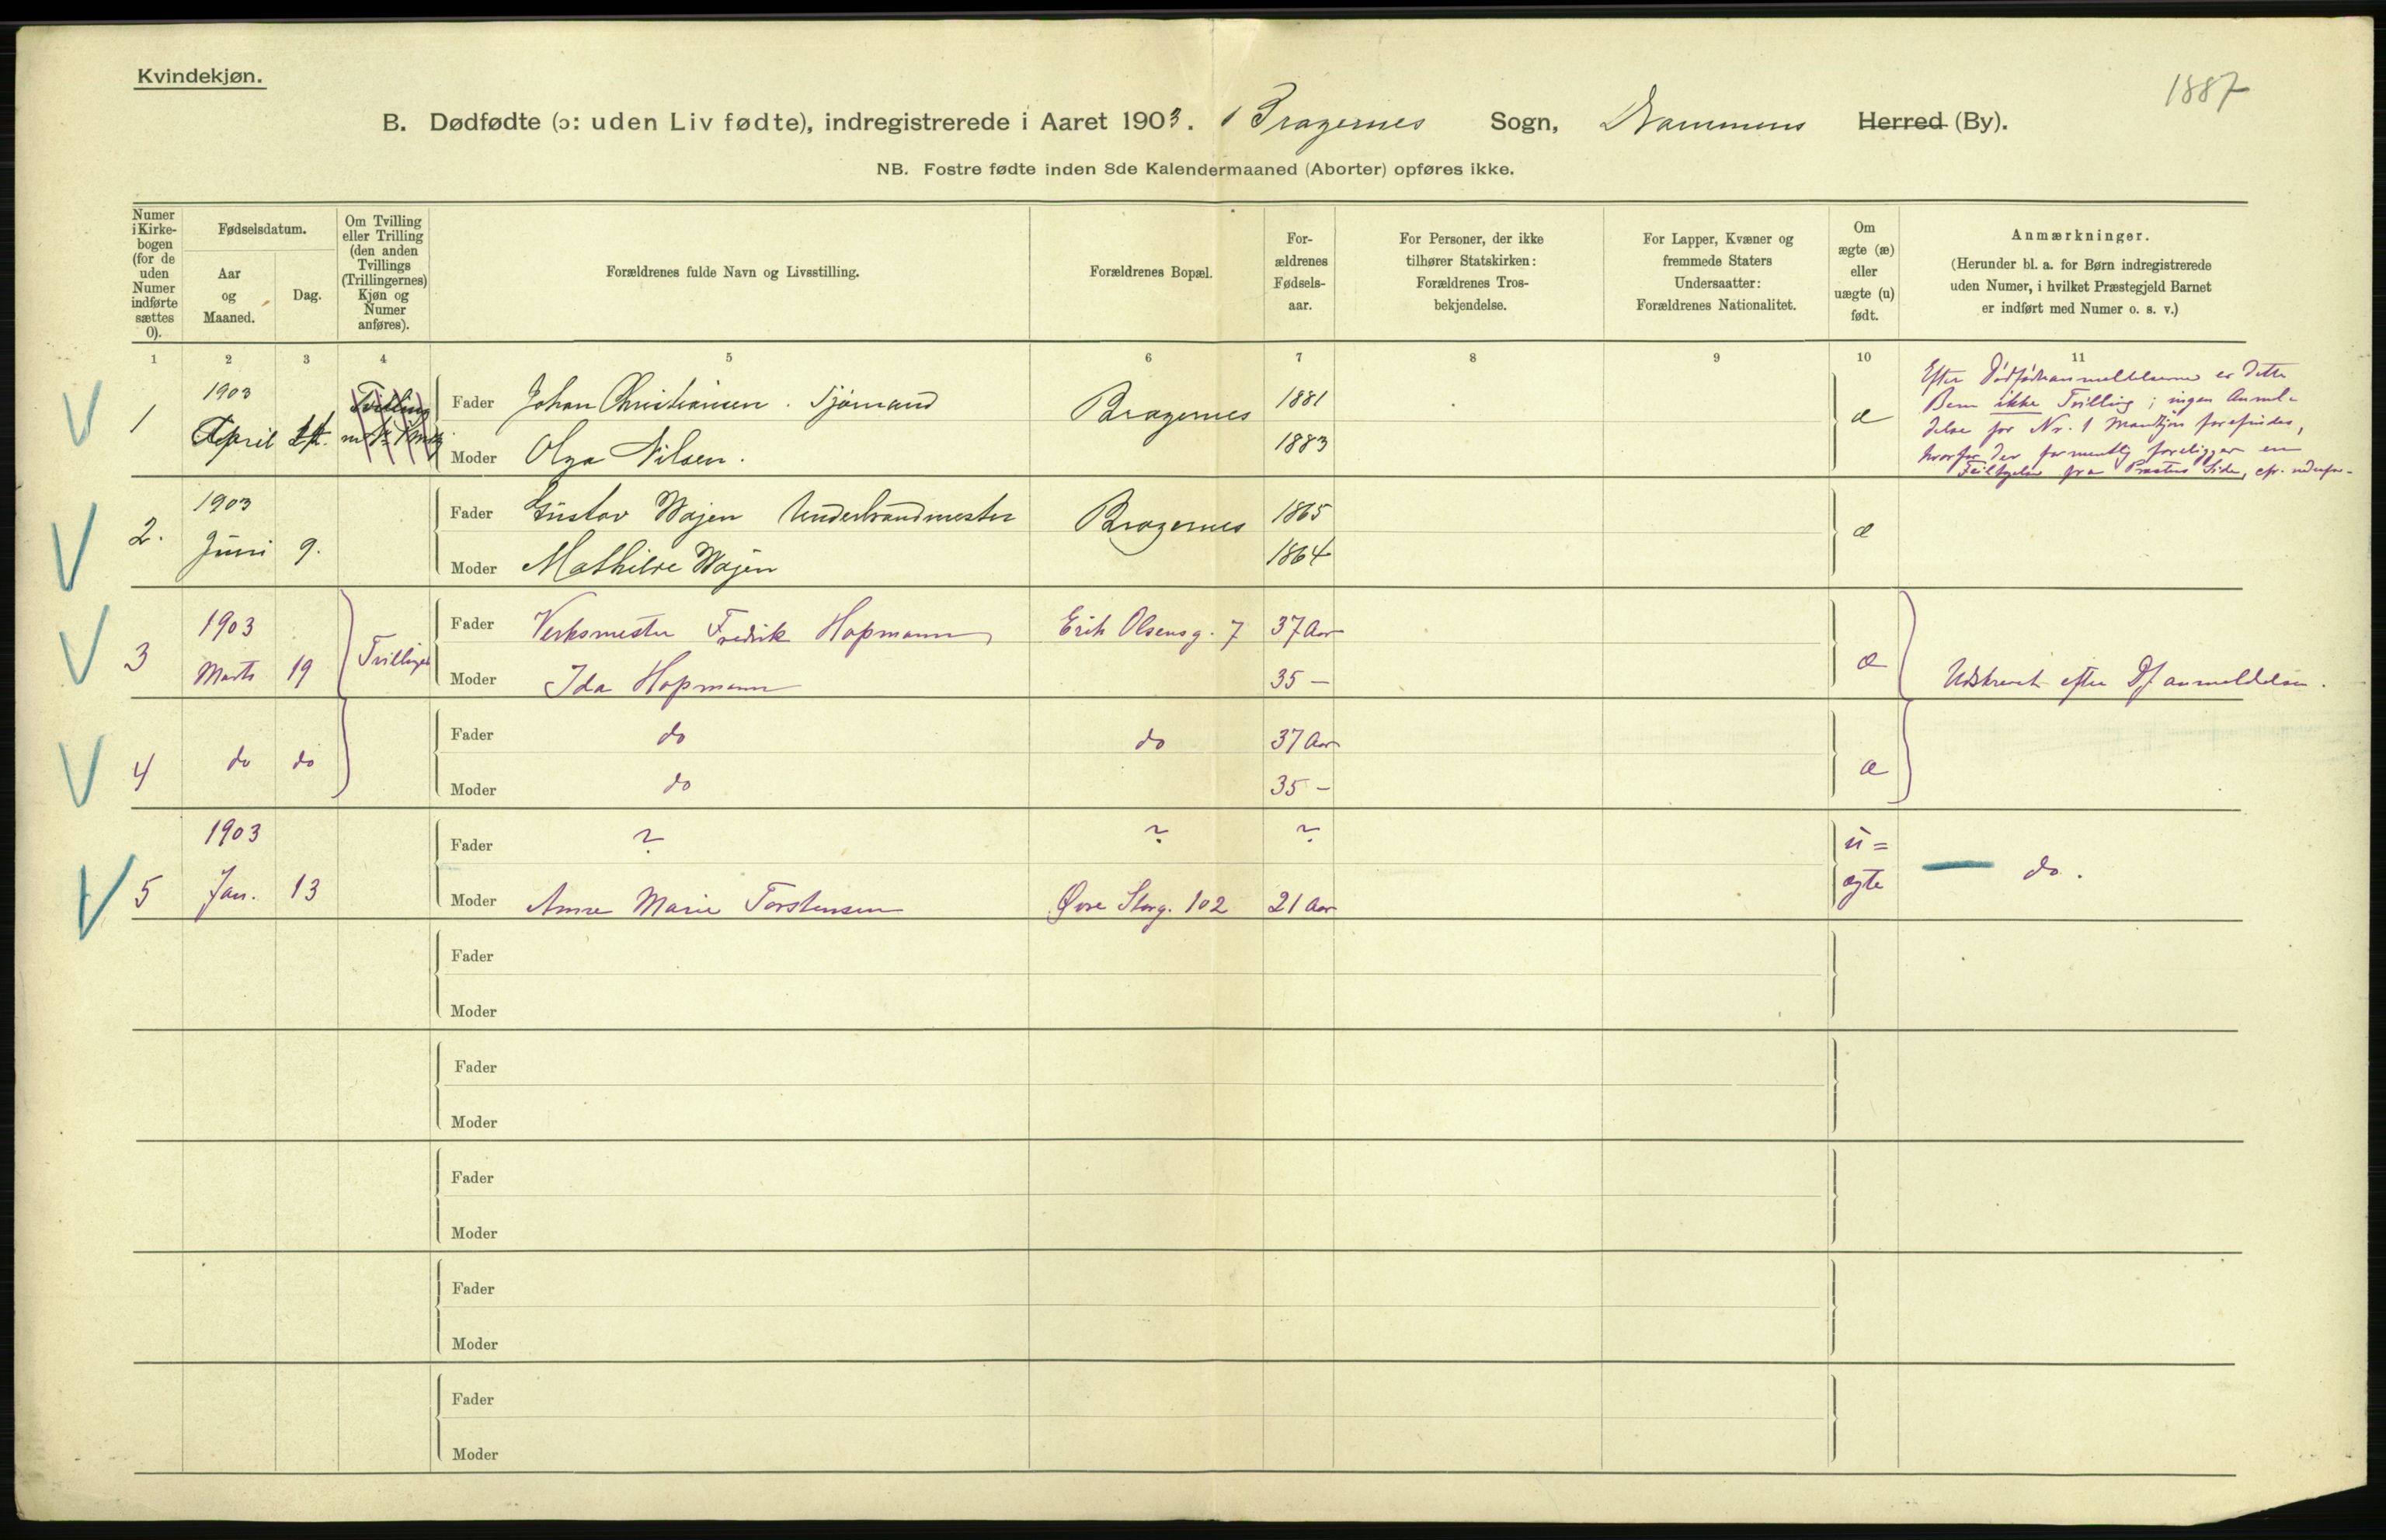 Kvindekjøn.
1887
B. Dødfødte (ɔ: uden Liv fødte), indregistrerede i Aaret 1903. Bragernes Sogn, Drammens Herred (By).
NB. Fostre fødte inden 8de Kalendermaaned (Aborter) opføres ikke.
Numer
i Kirke-
bogen
(for de
uden
Numer
indførte
sættes
0).
Fødselsdatum.
Aar
og
Maaned.
Dag.
Om Tvilling
eller Trilling
(den anden
Tvillings
(Trillingernes)
Kjøn og
Numer
anføres).
Forældrenes fulde Navn og Livsstilling.
Forældrenes Bopæl.
For-
ældrenes
Fødsels-
aar.
For Personer, der ikke
tilhører Statskirken:
Forældrenes Tros-
bekjendelse.
For Lapper, Kvæner og
fremmede Staters
Undersaatter:
Forældrenes Nationalitet.
Om
ægte (æ)
eller
uægte (u)
født.
Anmærkninger.
(Herunder bl. a. for Børn indregistrerede
uden Numer, i hvilket Præstegjeld Barnet
er indført med Numer o. s. v.)
1 2 3 4 5 6 7 8 9 10 11
1 1903 April Tvilling
Fader Johan Christiansen. Sjømand Bragernes 1881 æ
Moder Olga Nilsen. 1883
Efter Dødfødtanmeldelserne er dette
Barn ikke Tvilling; ingen Anmel-
delse for Nr. 1 Mandkjøn forefindes,
hvorfor der formentlig foreligger en
fra Præstens Side, cfr. nedenfor
2. 1903 Juni 9.
Fader Gustav Wajen Underbrandmester Bragernes 1865 æ
Moder Mathilde Wajen 1864
3 1903 Marts 19 Tvillinger
Fader Verksmester Fredrik Hopmann Erik Olsensg. 7 37 Aar æ
Moder Ida Hopmann 35 –
Udskrevet efter Df anmeldelsen.
4 do do
Fader do do 37 Aar æ
Moder do 35 –
5 1903 Jan. 13
Fader ? ? ? u=
Moder Anne Marie Torstensen Øvre Storg. 102 21 Aar ægte
— do.
Fader
Moder
Fader
Moder
Fader
Moder
Fader
Moder
Fader
Moder